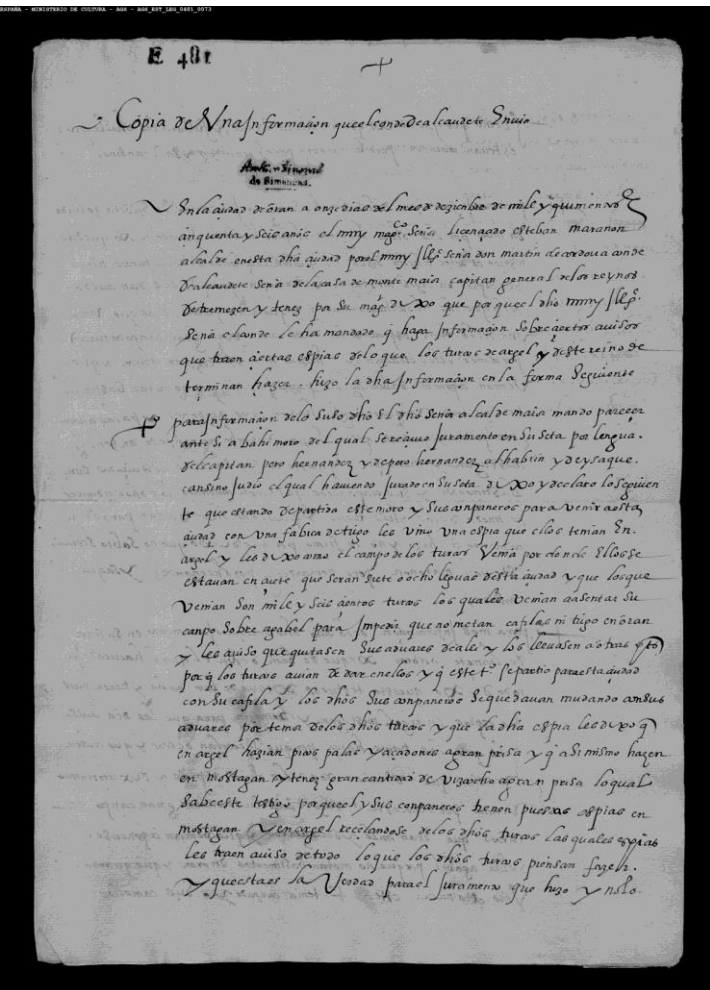 ESPAÑA - MINISTERIO DE CULTURA - AGS - AGS_EST_LEG_0481_0073
E 481
Copia de Una Informaçion que el conde de alcaudete Enuio
Archivo General
de Simancas.
En la çiudad de oran a onze dias del mes de deziembre de mile y quinientos
çinquenta y seis años el muy magco señor liçençiado esteban marañon
alcalde en esta dha çiudad por el muy Ille señor don martin de cordoua conde
de alcaudete señor de la casa de monte maior capitan general de los reynos
de tremezen y tenez por su magt dixo que por que el dho muy Ille
señor conde le ha mandado q haga Informaçion sobre çiertos auisos
que traen çiertas espias de lo que los turcos de argel y deste reino de
terminan hazer. hizo la dha Informaçion en la forma siguiente
para Informaçion de lo suso dho El dho señor alcalde maior mando pareçer
ante si a bahi moro del qual se reçiuio Juramento en su seta por lengua
del capitan pero hernandez y de pero hernandez albharin y de ysaque
cansino Judio el qual hauiendo Jurado en su seta dixo y declaro lo siguien
te que estando de partida este moro y sus conpaneros para venir a esta
çiudad con una de trigo les vino una espia que ellos tenian En
argel y les dixo como el campo de los turcos Venia por donde Ellos se
estauan en que seran siete o ocho leguas desta çiudad y que los que
Venian son mile y seis çientos turcos los quales venian a asentar su
campo sobre agabel para Impedir que no metan cafilas ni trigo en oran
y les auiso que quitasen sus aduares de ali y los lleuasen a otras ptes
por q los turcos auian de dar en ellos y q este to se partio para esta çiudad
con su cafila y los dhos sus conpaneros se quedauan mudando con sus
aduares por tema de los dhos turcos y que la dha espia les dixo q
en argel hazian picos palas y açadones a gran prisa y q asi mismo hazen
en mostagan y tenez gran cantidad de vizcocho a gran prisa lo qual
sabe este testigo por que el y sus conpaneros tienen puestas espias en
mostagan y en argel reçelandose de los dhos turcos las quales espias
les traen auiso de todo lo que los dhos turcos piensan fazer.
y que esta es la Verdad para el Juramento que hizo y no lo